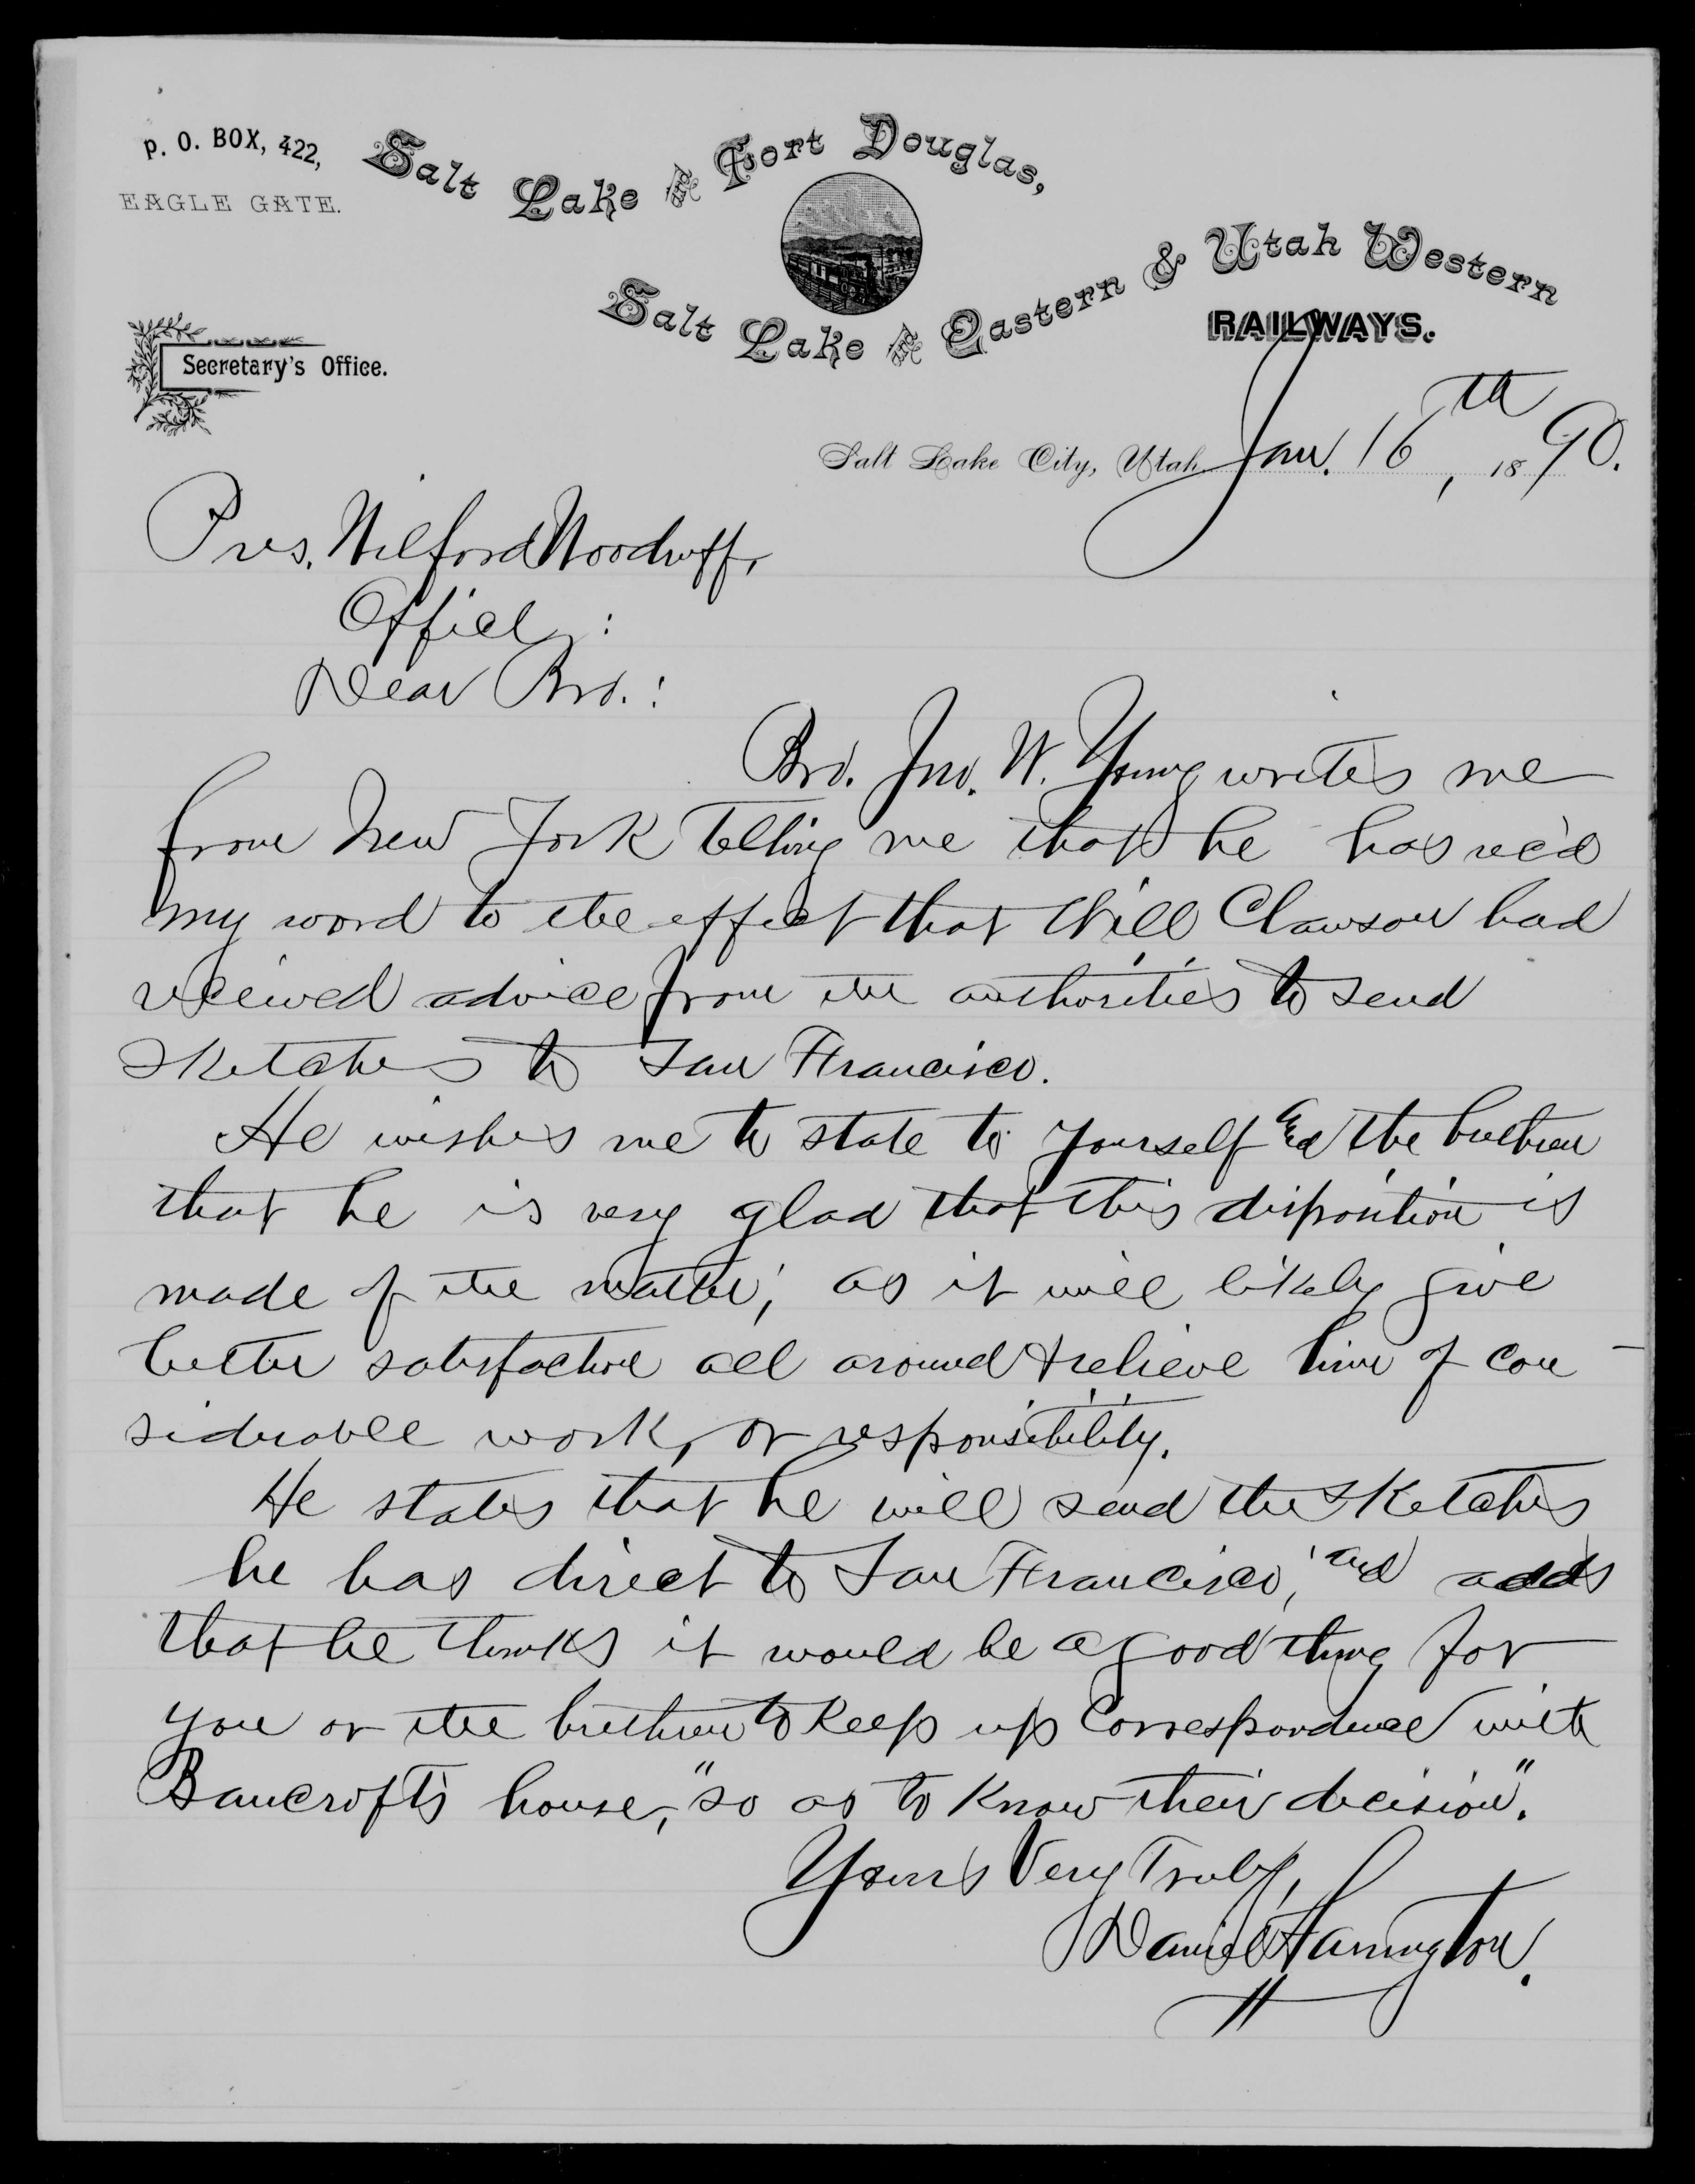 P. O. BOX, 422,
EAGLE GATE.
Salt Lake and Fort Douglas,
Salt Lake and Eastern & Utah Western
RAILWAYS.
Secretary's Office.
Salt Lake City, Utah Jan. 16th, 1890.
Pres. Wilford Woodruff,
Office:
Dear Bro.:
Bro. Jno. W. Young writes me
from New York telling me that he has rec'd
my word to the effect that Will Clawson had
received advice from the authorities to send
sketches to San Francisco.
He wishes me to state to yourself and the brethren
that he is very glad that this disposition is
made of the matter; as it will likely give
better satisfaction all around & relieve him of con-
siderable work, or responsibility.
He states that he will send the sketches
he has direct to San Francisco; and adds
that he thinks it would be a good thing for
you or the brethren to keep up correspondence with
Bancroft's house, "so as to know their decision".
Yours Very Truly,
Daniel Harrington.